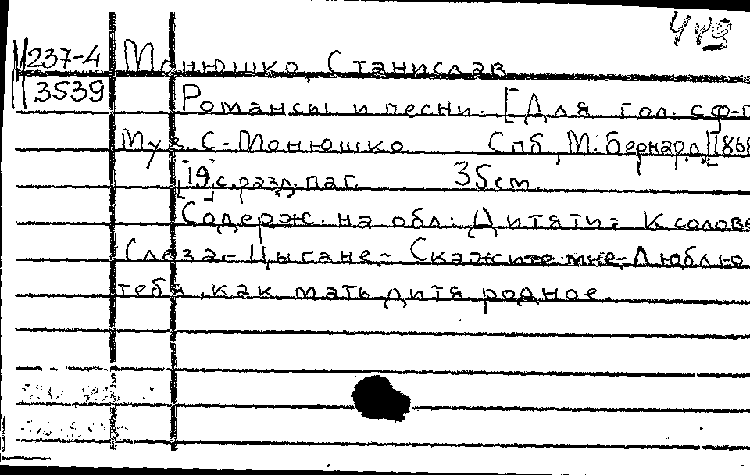 449
237-4 Монюшко, Станислав
3539 Романсы и песни. [Для гол. с ф-п
Муз. С. Монюшко Спб, М. Бернард, [186
[19] с. разд. паг. 35 см.
Содерж. на обл.: Дитяти.- К солове
Слеза.- Цыгане.- Скажите мне.- Люблю
тебя, как мать дитя родное.